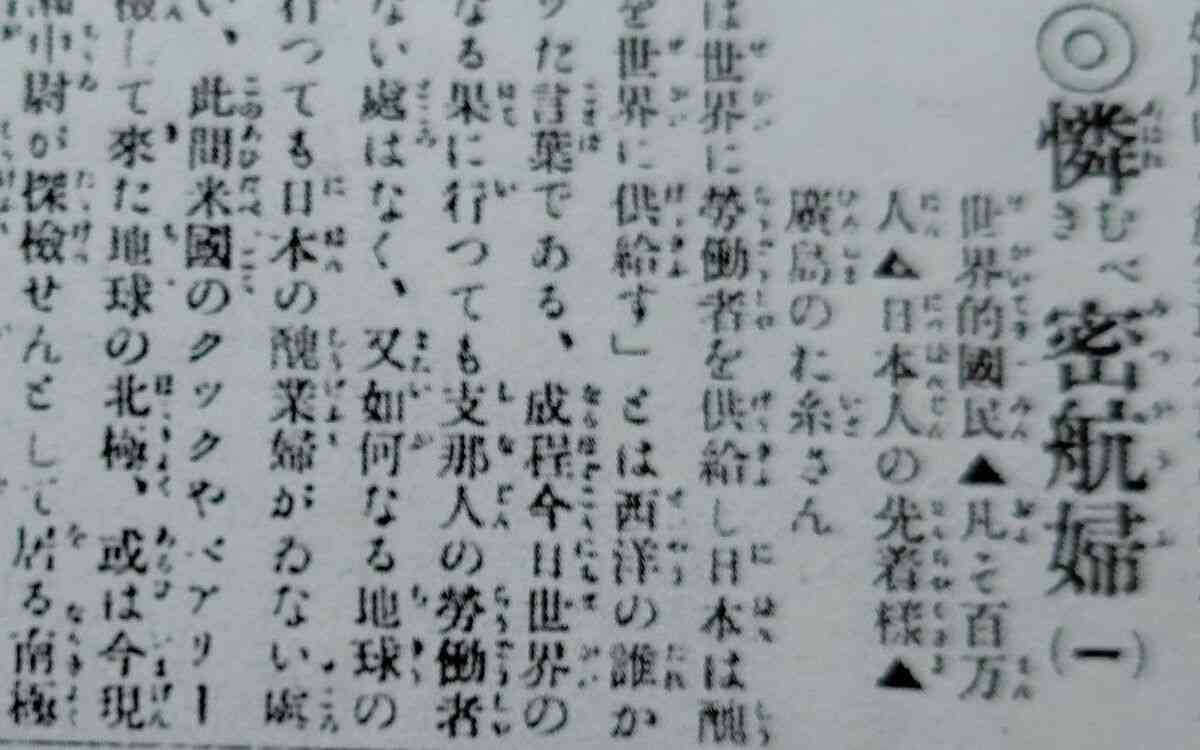 ◎憐むべき密航婦(一)
世界的國民▲凡そ百万
人▲日本人の先着様▲
廣島のお糸さん
は世界に勞働者を供給し日本は醜
を世界に供給す」とは西洋の誰か
つた言葉である、成程今日世界の
なる果に行つても支那人の勞働者
ない處はなく、又如何なる地球の
行つても日本の醜業婦がゐない處
い、此間米國のクックやペアリー
檢して來た地球の北極、或は今現
中尉が探檢せんとして居る南極